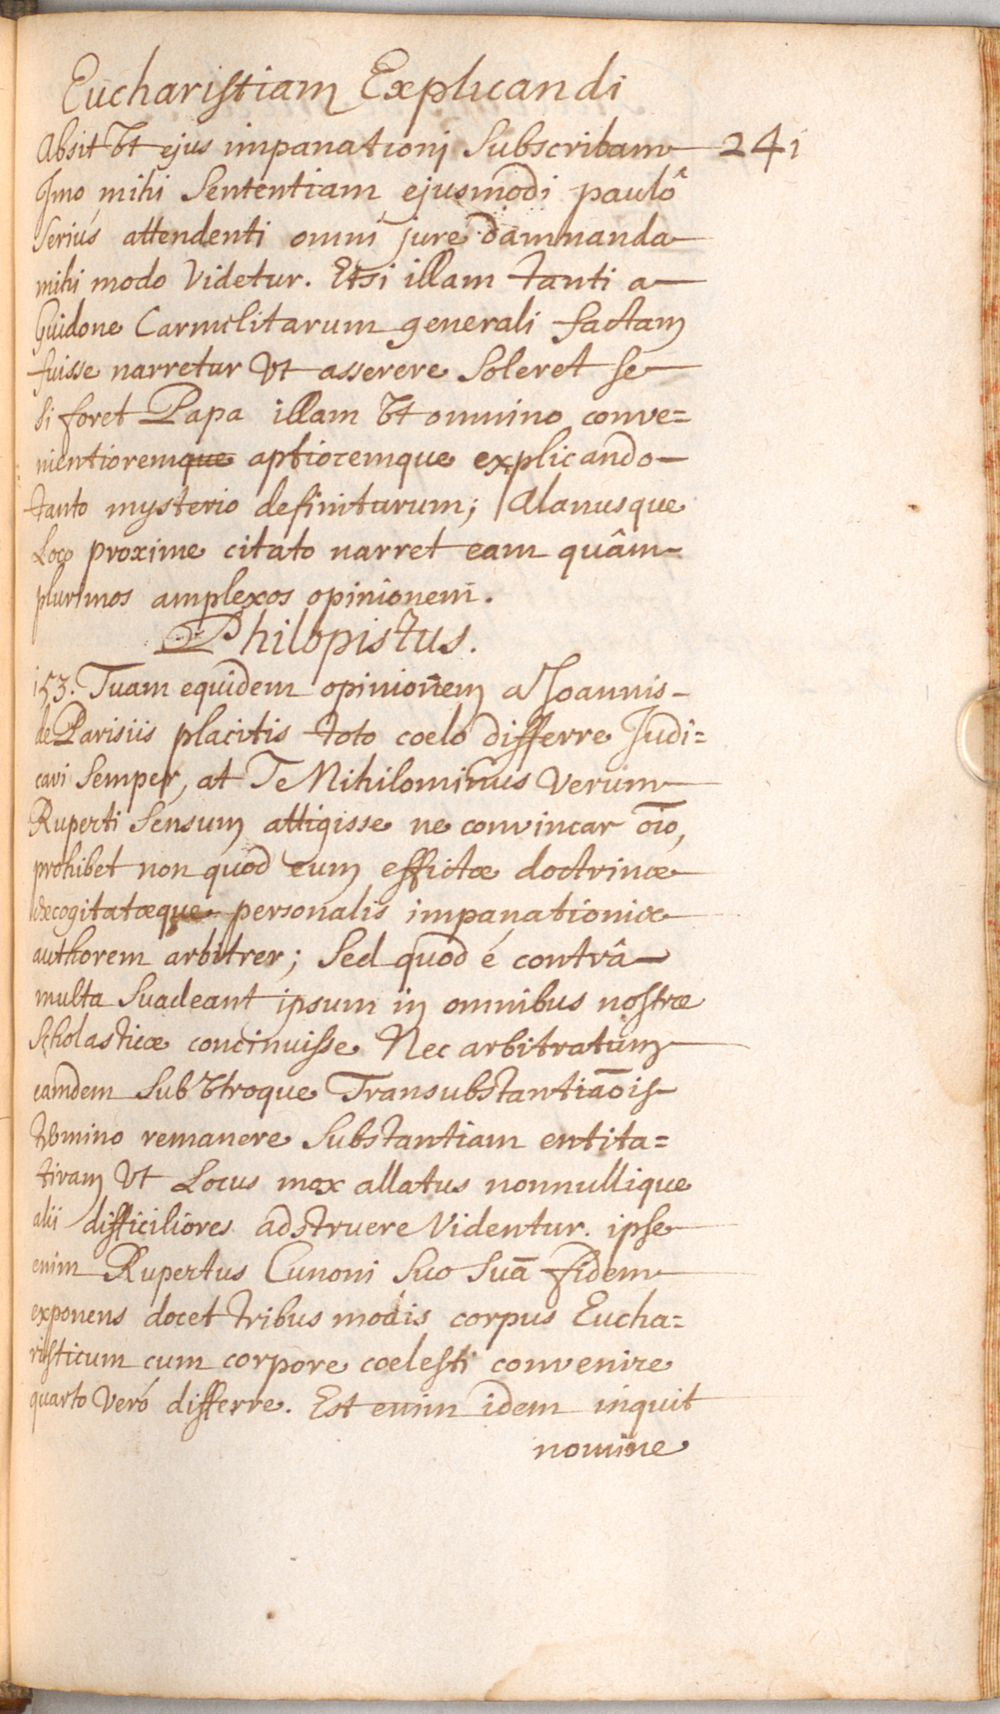 Eucharistiam Explicandi
Absit Vt ejus impanationi Subscribam 241
Jmo mihi Sententiam ejusmodi paulô
Seriús attendenti omni jure damnanda
mihi modo Videtur. Etsi illam tanti a
Guidone Carmelitarum generali factam
fuisse narretur Vt asserere Soleret se
Si foret Papa illam Vt omnino conve=
nientioremque aptioremque explicando
tanto mysterio definiturum; Alanusque
Loco proxime citato narret eam quâm
plurimos amplexos opinionem.
Philopistus.
153. Tuam equidem opinionem a Joannis
de Parisiis placitis toto coelo differre Judi=
cavi Semper, at Te Nihilominus Verum
Ruperti Sensum attigisse ne convincar oĩo,
prohibet non quod eum effictæ doctrinæ
excogitatæque personalis impanationis
authorem arbitrer; Sed quod é contrâ
multa Suadeant ipsum in omnibus nostræ
Scholasticæ concinuisse Nec arbitratum
eamdem Sub Vtroque Transubstantiãois
termino remanere Substantiam entita=
tivam Vt Locus mox allatus nonnullique
alii difficiliores adstruere Videntur. ipse
enim Rupertus Cunoni Suo Suã fidem
exponens docet tribus modis corpus Eucha=
risticum cum corpore coelesti convenire
quarto Veró differre. Est enim idem inquit
nomine